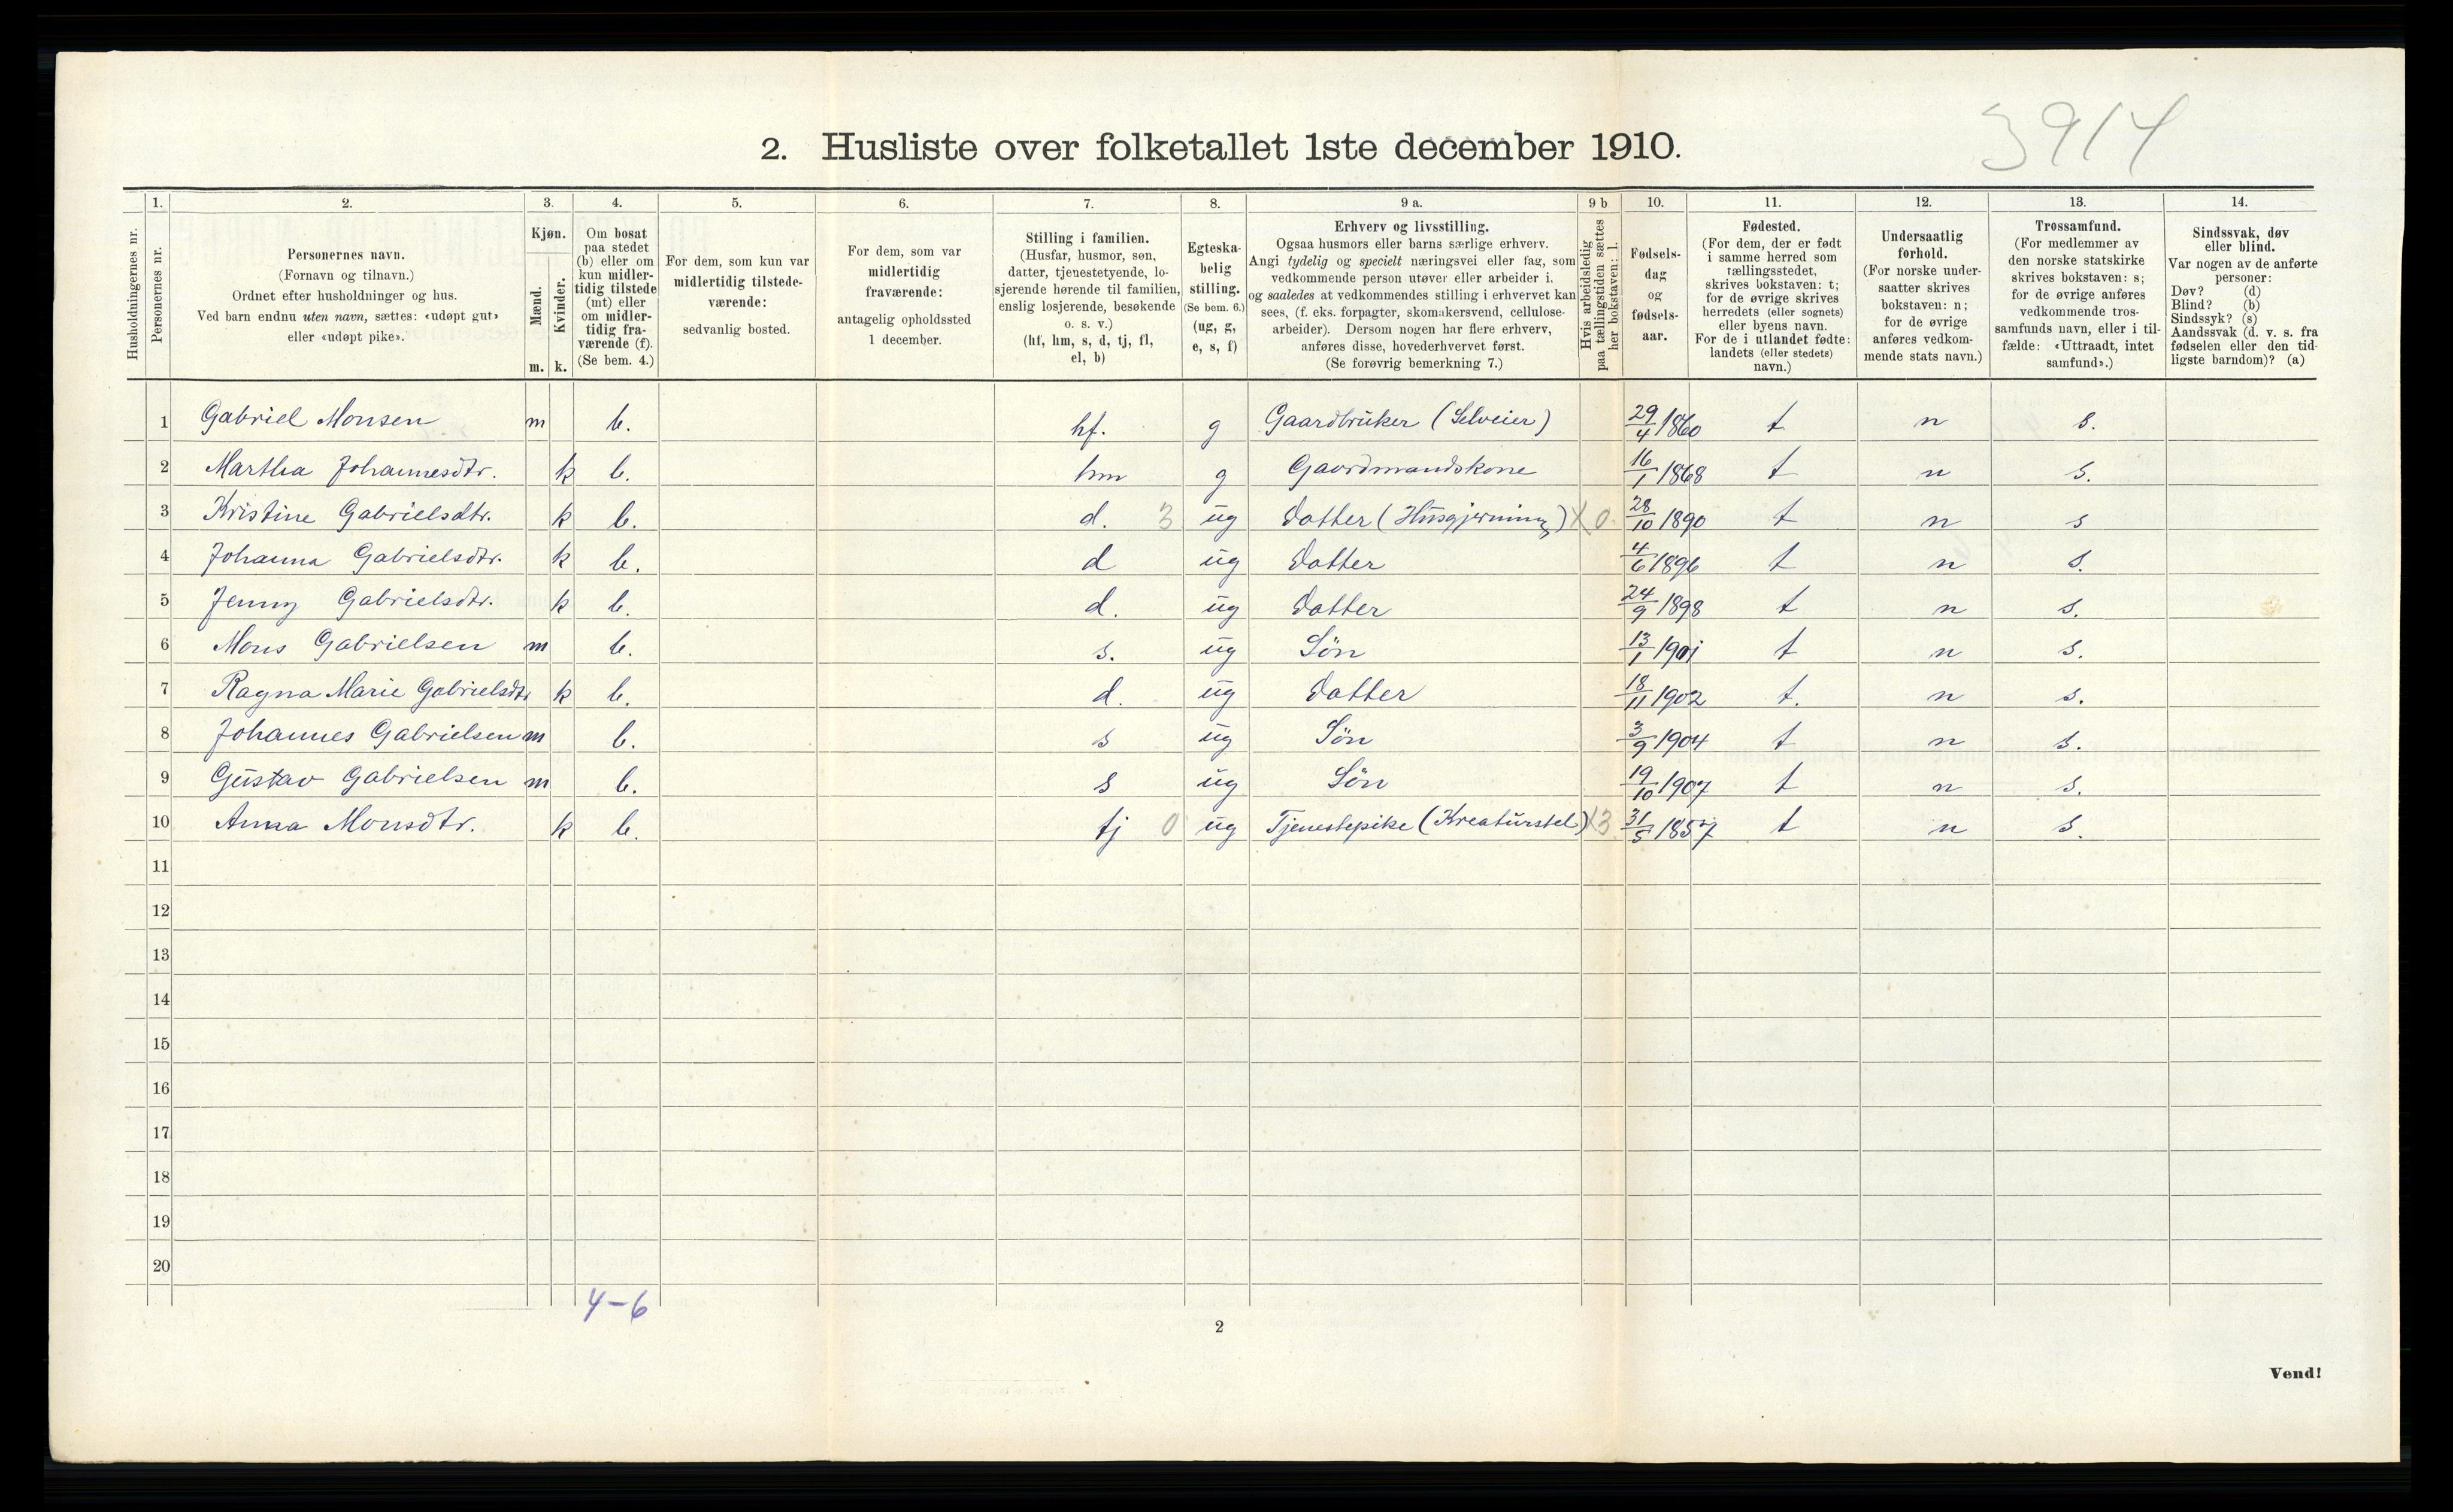 3914
2. Husliste over folketallet 1ste december 1910.
Husholdningernes nr.
1.
Personernes nr.
2.
Personernes navn.
(Fornavn og tilnavn.)
Ordnet efter husholdninger og hus.
Ved barn endnu uten navn, sættes: «udøpt gut»
eller «udøpt pike».
3.
Kjøn.
Mænd.
Kvinder.
m. k.
4.
Om bosat
paa stedet
(b) eller om
kun midler-
tidig tilstede
(mt) eller
om midler-
tidig fra-
værende (f).
(Se bem. 4.)
5.
For dem, som kun var
midlertidig tilstede-
værende:
sedvanlig bosted.
6.
For dem, som var
midlertidig
fraværende:
antagelig opholdssted
1 december.
7.
Stilling i familien.
(Husfar, husmor, søn,
datter, tjenestetyende, lo-
sjerende hørende til familien,
enslig losjerende, besøkende
o. s. v.)
(hf, hm, s, d, tj, fl,
el, b)
8.
Egteska-
belig
stilling.
(Se bem. 6.)
(ug, g,
e, s, f)
9 a.
Erhverv og livsstilling.
Ogsaa husmors eller barns særlige erhverv.
Angi tydelig og specielt næringsvei eller fag, som
vedkommende person utøver eller arbeider i,
og saaledes at vedkommendes stilling i erhvervet kan
sees, (f. eks. forpagter, skomakersvend, cellulose-
arbeider). Dersom nogen har flere erhverv,
anføres disse, hovederhvervet først.
(Se forøvrig bemerkning 7.)
9 b
Hvis arbeidsledig
paa tællingstiden sættes
her bokstaven: l.
10.
Fødsels-
dag
og
fødsels-
aar.
11.
Fødested.
(For dem, der er født
i samme herred som
tællingsstedet,
skrives bokstaven: t;
for de øvrige skrives
herredets (eller sognets)
eller byens navn.
For de i utlandet fødte:
landets (eller stedets)
navn.)
12.
Undersaatlig
forhold.
(For norske under-
saatter skrives
bokstaven: n;
for de øvrige
anføres vedkom-
mende stats navn.)
13.
Trossamfund.
(For medlemmer av
den norske statskirke
skrives bokstaven: s;
for de øvrige anføres
vedkommende tros-
samfunds navn, eller i til-
fælde: «Uttraadt, intet
samfund».)
14.
Sindssvak, døv
eller blind.
Var nogen av de anførte
personer:
Døv? (d)
Blind? (b)
Sindssyk? (s)
Aandssvak (d. v. s. fra
fødselen eller den tid-
ligste barndom)? (a)
1 Gabriel Monsen m b. hf. g Gaardbruker (Selveier) 29/4 1860 t n s.
2 Martha Johannesdtr. k b. hm g Gaardmandskone 16/1 1868 t n s.
3 Kristine Gabrielsdtr. k b. d. 3 ug Datter (Husgjerning) X 0 28/10 1890 t n s
4 Johanna Gabrielsdtr. k b. d ug Datter 4/6 1896 t n s.
5 Jenny Gabrielsdtr. k b. d. ug Datter 24/9 1898 t n s.
6 Mons Gabrielsen m b. s. ug Søn 13/1 1901 t n s.
7 Ragna Marie Gabrielsdtr k b. d. ug Datter 18/11 1902 t. n s.
8 Johannes Gabrielsen m b. s ug Søn 3/9 1904 t n s.
9 Gustav Gabrielsen m b. s ug Søn 19/10 1907 t n s.
10 Anna Monsdtr. k b. tj 0 ug Tjenestepike (Kreaturstel) X3 31/5 1857 t n s.
11
12
13
14
15
16
17
18
19
20
4-6
2
Vend!